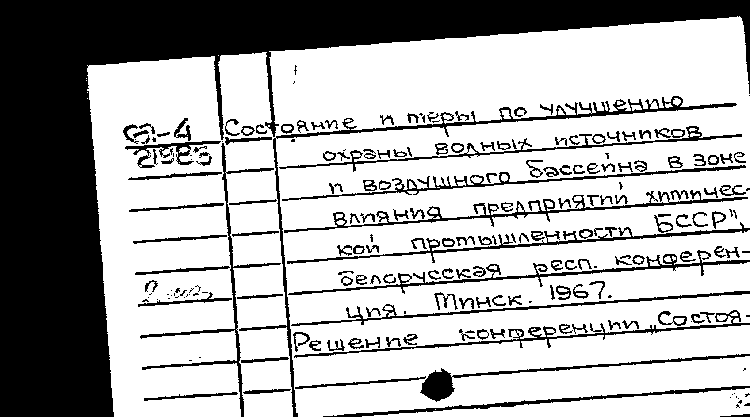 Состояние и меры по улучшению
21983
охраны водных источников
и воздушного бассейна в зоне
влияния предприятий химичес-
кой промышленности БССР",
белорусская респ. конферен-
ция. Минск. 1967.
Решение конференции „Состоя-